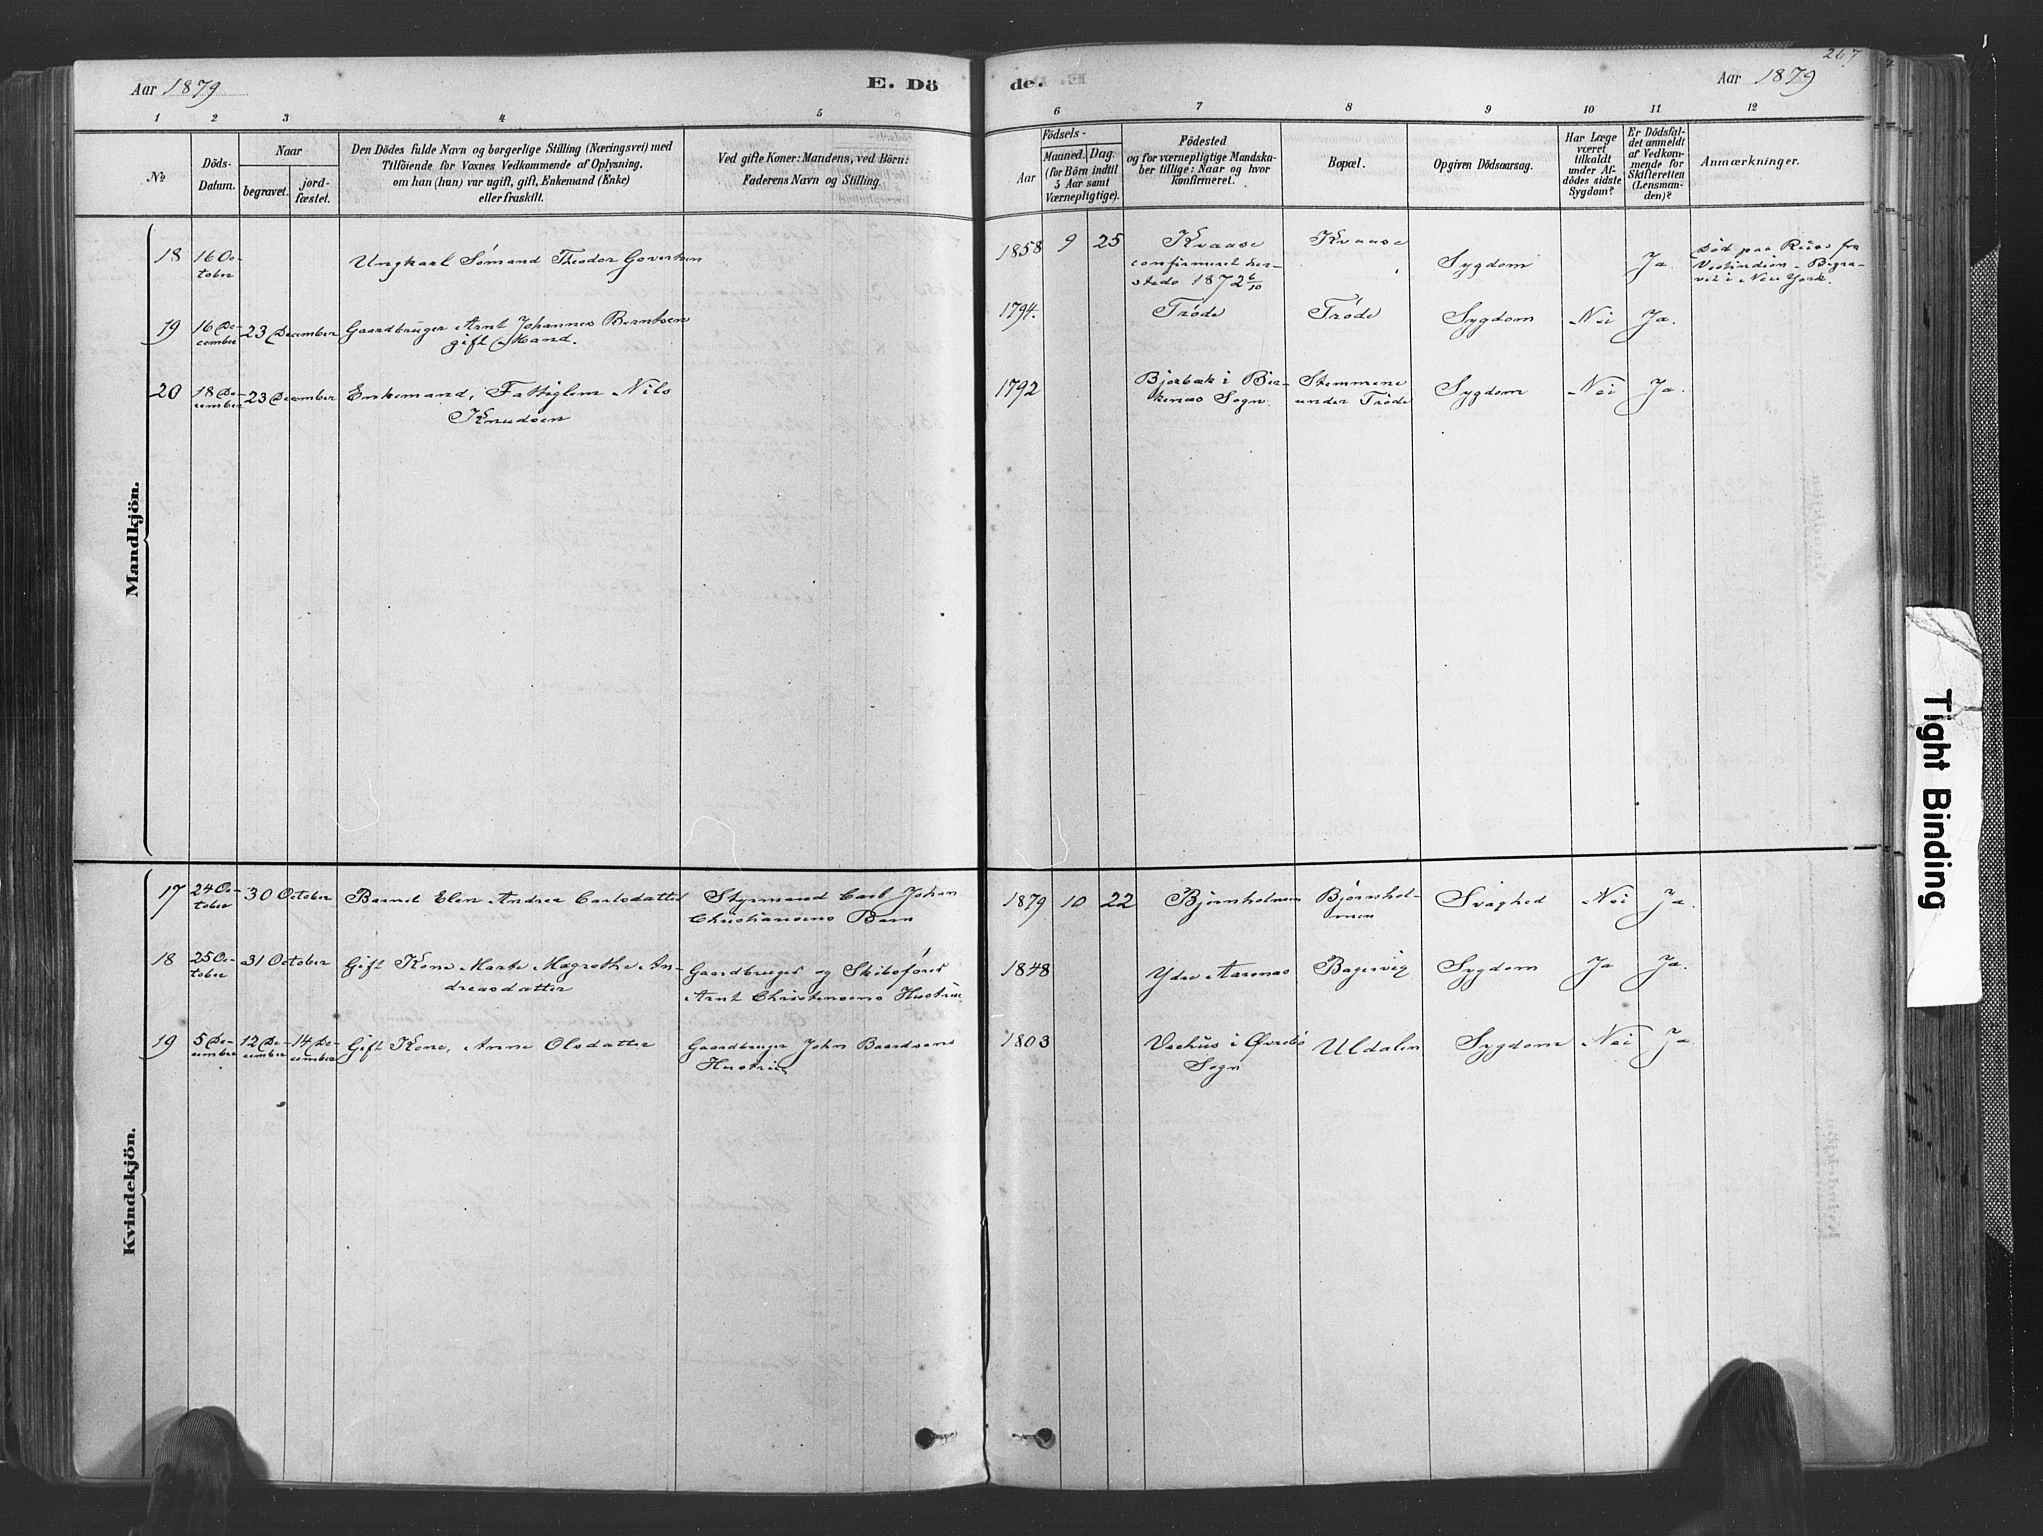 267
Aar 1879
E. Dö
de.
Aar 1879
1 2 3 4 5 6 7 8 9 10 11 12
No
Döds-
Datum.
Naar
begravet.
jord-
fæstet.
Den Dödes fulde Navn og borgerlige Stilling (Næringsvei) med
Tilföiende for Voxnes Vedkommende af Oplysning,
om han (hun) var ugift, gift, Enkemand (Enke)
eller fraskilt.
Ved gifte Koner: Mandens, ved Börn:
Faderens Navn og Stilling.
Födsels-
Aar
Maaned. Dag.
(for Börn indtil
5 Aar samt
Værnepligtige).
Födested
og for værnepligtige Mandska-
ber tillige: Naar og hvor
Konfirmeret.
Bopæl.
Opgiven Dödsaarsag.
Har Læge
været
tilkaldt
under Af-
dödes sidste
Sygdom?
Er Dödsfal-
det anmeldt
af Vedkom-
mende for
Skifteretten
(Lensman-
den)?
Anmærkninger.
Mandkjön.
18
16 Oc-
tober
Ungkarl Sömand Theodor
1858 9 25
Kvaase
confirmeret her-
steds 1872 6/10
Kvaase
Sygdom
Ja
Död paa Reise fra
Vestindien. Begra-
vet i New York.
19
16 De-
cember
23 December
Gaardbruger Arnt Johannes Berntsen
gift Mand.
1794.
Tröde
Tröde
Sygdom
Nei
Ja.
20
18 De-
cember
23 December
Enkemand, Fattiglem Nils
Knudsen
1792
Bjorbæk i Bir-
kenæs Sogn.
Stemmene
under Tröde
Sygdom
Nei
Ja.
Kvindekjön.
17
24 Oc-
tober
30 October
Barnet Elen Andrea Carlsdatter
Styrmand Carl Johan
Christiansens Barn
1879 10 22
Björnholmen
Björnhol-
men
Svaghed
Nei
Ja.
18
25 Oc-
tober
31 October
Gift Kone Marte Magrethe An-
dreasdatter
Gaardbruger og Skibsförer
Arnt Christensens Hustrue
1848
Ydre Aarenæs
Bagervig
Sygdom
Ja
Ja.
19
5 De-
cember
12 De-
cember
14 De-
cember
Gift Kone, Anne Olsdatter
Gaardbruger John Baardsens
Hustrue
1803
Veehus i Øvrebö
Sogn
Uldalen
Sygdom
Nei
Ja
Tight Binding